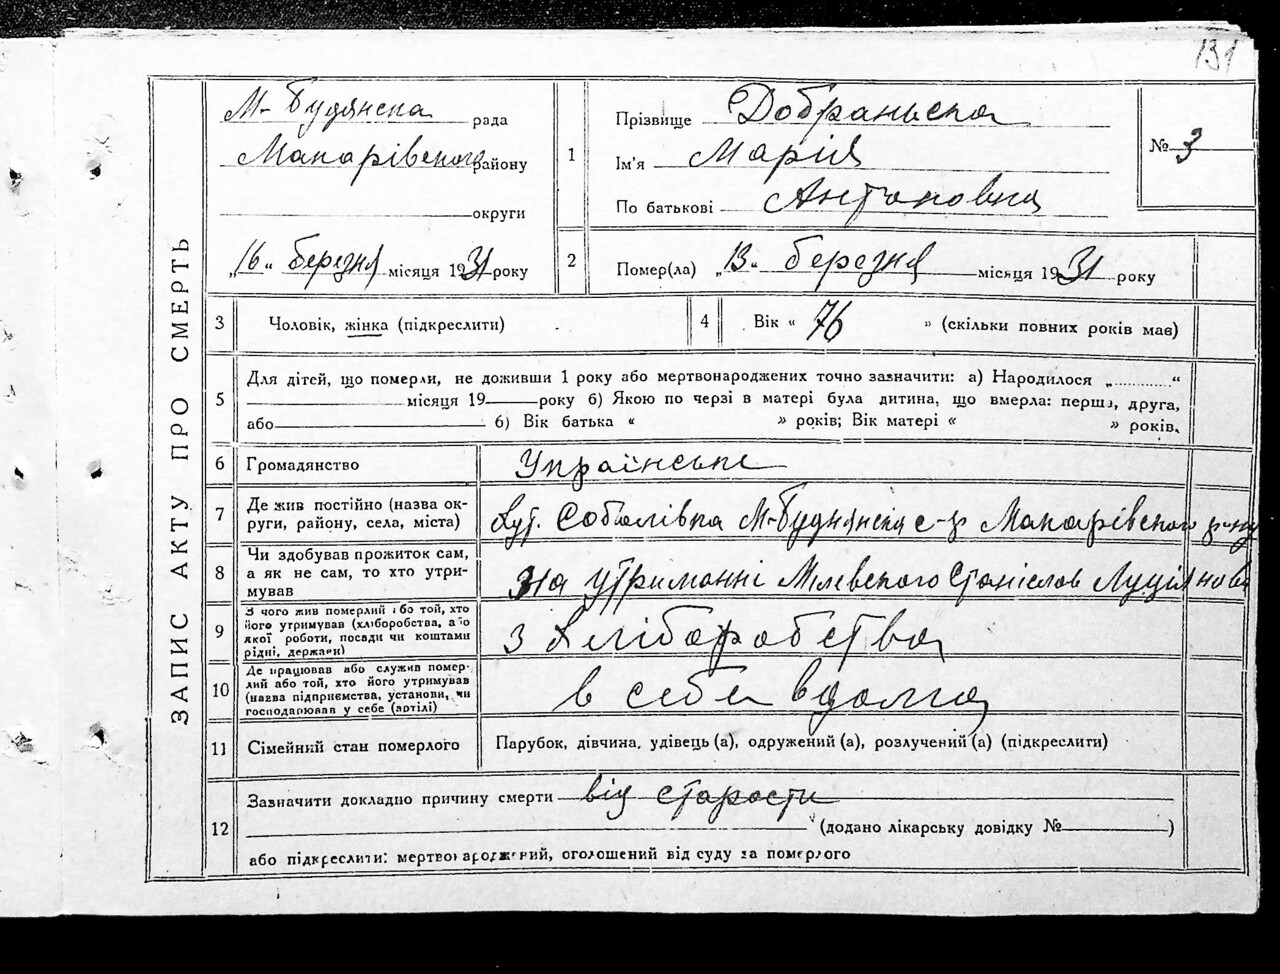 131
ЗАПИС АКТУ ПРО СМЕРТЬ
М-Будянська рада
Макарівського району
округи
„16“ березня місяця 1931 року
1
Прізвище Добраньска
Ім'я Марія
По батькові Антоновна
№ 3
2
Помер(ла) „13“ березня місяця 1931 року
3
Чоловік, жінка (підкреслити)
4
Вік « 76 » (скільки повних років мав)
5
Для дітей, що померли, не доживши 1 року або мертвонароджених точно зазначити: а) Народилося „..........“
місяця 19 року б) Якою по черзі в матері була дитина, що вмерла: перша, друга,
або б) Вік батька « » років; Вік матері « » років.
6
Громадянство
Українське
7
Де жив постійно (назва ок-
руги, району, села, міста)
хут. Соболівка М-Буднянска с-р Макарівского р-ну
8
Чи здобував прожиток сам,
а як не сам, то хто утри-
мував
на утриманні Мілевского Станіслав
9
З чого жив померлий або той, хто
його утримував (хліборобства, або
якої роботи, посади чи коштами
рідні, держави)
з хліборобства
10
Де працював або служив помер-
лий або той, хто його утримував
(назва підприємства, установи, чи
господарював у себе (артілі)
в себе вдома
11
Сімейний стан померлого
Парубок, дівчина, удівець (а), одружений (а), розлучений (а) (підкреслити)
12
Зазначити докладно причину смерти від старости
(додано лікарську довідку № )
або підкреслити: мертвонароджений, оголошений від суду за померлого